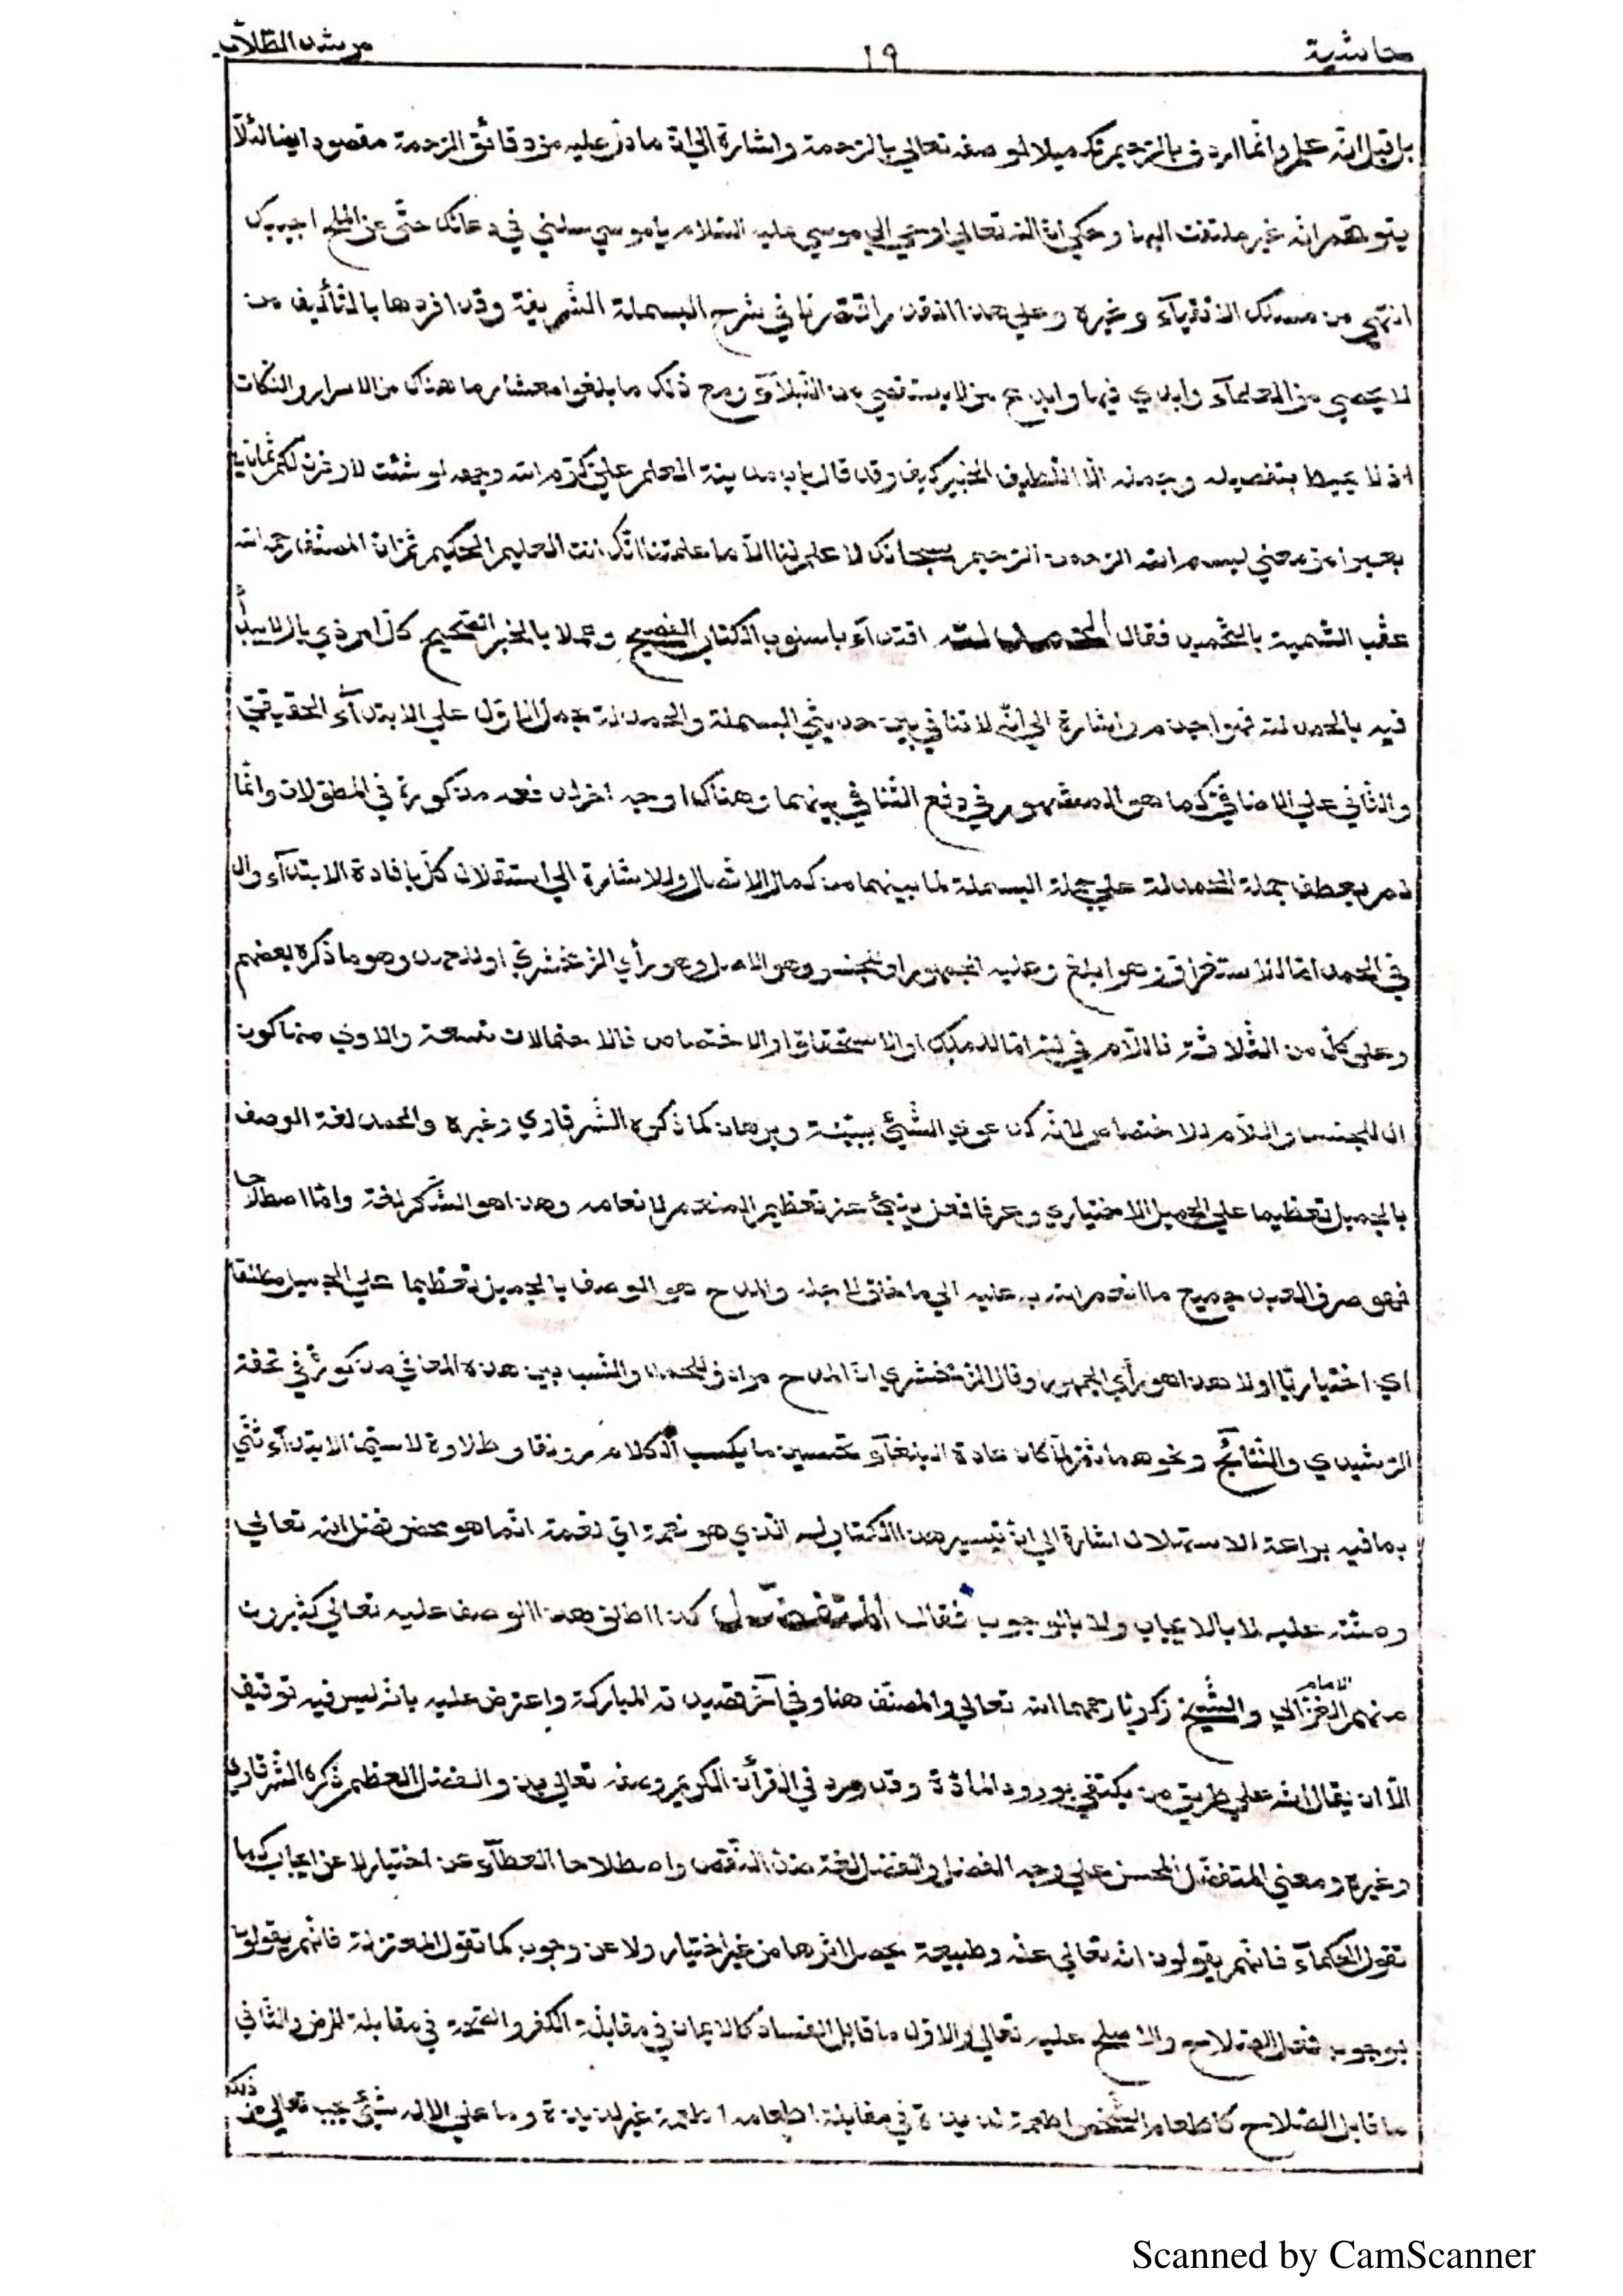 حاشية ١٩ مرشد الطلاب
بل قيل انه علم وانما اردف بالرحيم تكميلا لوصفه تعالى بالرحمة واشارة الى ان ما دل عليه من دقائق الرحمة مقصود ايضا لئلا
يتوهم انه غير ملتفت اليها وحكي ان الله تعالى اوحى الى موسى عليه السلام يا موسى سلني في دعائك حتى عن الملح اجيبك
انتهى من مسلك الاتقياء وغيره وعلى هذا القدر اقتصرنا في شرح البسملة الشريفة وقد افردها بالتأليف من
لا يحصى من العلماء وابدى فيها وابدع من لا يستقصى من النبلاء ومع ذلك ما بلغوا معشار ما هناك من الاسرار والنكات
اذ لا يحيط بتفصيله وجمله الا اللطيف الخبير كيف وقد قال باب مدينة العلم علي كرم الله وجهه لو شئت لاوقرت لكم ثمانين
بعيرا من معنى بسم الله الرحمن الرحيم سبحانك لا علم لنا الا ما علمتنا انك انت العليم الحكيم ثم ان المصنف رحمه الله
عقب التسمية بالتحميد فقال الحمد لله اقتداء باسلوب الكتاب الفصيح وعملا بالخبر الصحيح كل امر ذي بال لا يبدأ
فيه بالحمد لله فهو اجذم واشارة الى انه لا تنافي بين حديثي البسملة والحمدلة بحمل الاول على الابتداء الحقيقي
والثاني على الاضافي كما هو المشهور في دفع التنافي بينهما وهناك اوجه اخر مذكورة في المطولات وانما
لم يعطف جملة الحمدلة على جملة البسملة لما بينهما من كمال الاتصال وللاشارة الى استقلال كل بافادة الابتداء وال
في الحمد اما للاستغراق وهو ابلغ وعليه الجمهور او للجنس وهو الاصل وهو رأي الزمخشري او للعهد وهو ما ذكره بعضهم
وعلى كل من الثلاثة فاللام في لله اما للملك او الاستحقاق او الاختصاص فالاحتمالات تسعة والاولى منها كون
ال للجنس واللام للاختصاص لانه كدعوى الشيء ببينة وبرهان كما ذكره الشرقاوي وغيره والحمد لغة الوصف
بالجميل تعظيما على الجميل الاختياري وعرفا فعل ينبئ عن تعظيم المنعم لانعامه وهذا هو الشكر لغة واما اصطلاحا
فهو صرف العبد جميع ما انعم الله به عليه الى ما خلق لاجله والمدح هو الوصف بالجميل تعظيما على الجميل مطلقا
اي اختياريا اولا هذا هو رأي الجمهور وقال الزمخشري ان المدح مرادف للحمد والنسب بين هذه المعاني مذكورة في تحفة
الرشيدي والنتائج ونحوهما ثم لما كان عادة البلغاء تحسين ما يكسب الكلام رونقا وطلاوة لا سيما الابتداء ثنى
بما فيه براعة الاستهلال اشارة الى ان تيسير هذا الكتاب له الذي هو نعمة اي نعمة انما هو محض فضل الله تعالى
ومنته عليه لا بالايجاب ولا بالوجوب فقال المتفضل كذا اطلق هذا الوصف عليه تعالى كثيرون
منهم الامام الغزالي والشيخ زكريا رحمهما الله تعالى والمصنف هنا وفي آخر قصيدته المباركة واعترض عليه بانه ليس فيه توقيف
الا ان يقال انه على طريق من يكتفي بورود المادة وقد ورد في القرآن الكريم وصفه تعالى بذو الفضل العظيم ذكره الشرقاوي
وغيره ومعنى المتفضل المحسن على وجه الفضل والفضل لغة ضد النقص واصطلاحا العطاء عن اختيار لا عن ايجاب كما
تقول الحكماء فانهم يقولون انه تعالى علة وطبيعة يحصل اثرها من غير اختيار ولا عن وجوب كما تقول المعتزلة فانهم يقولون
بوجوب فعل الصلاح والاصلح عليه تعالى والاول ما قابل الفساد كالايمان في مقابلة الكفر والصحة في مقابلة المرض والثاني
ما قابل الصلاح كاطعام الشخص اطعمة لذيذة في مقابلة اطعامه اطعمة غير لذيذة وما على الاله شيء يجب تعالى عن ذلك
Scanned by CamScanner